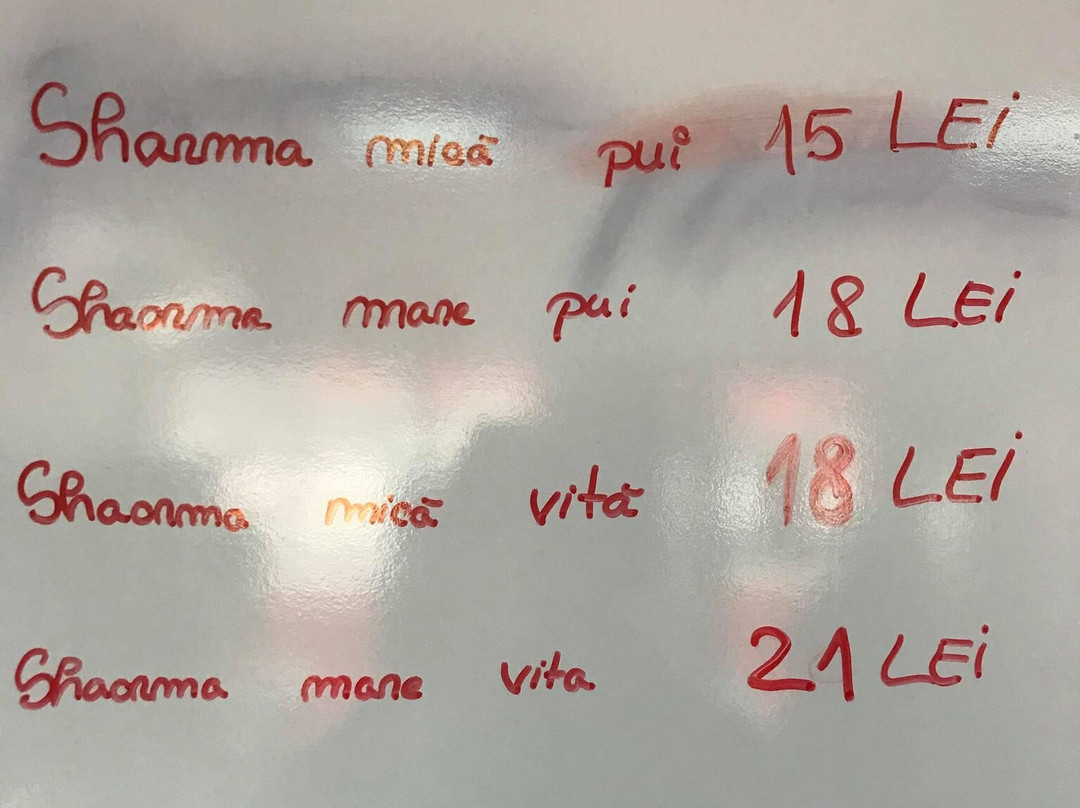 Sharma mică pui 15 LEi
Shaorma mare pui 18 LEi
Shaorma mică vită 18 LEi
Shaorma mare vita 21 LEi